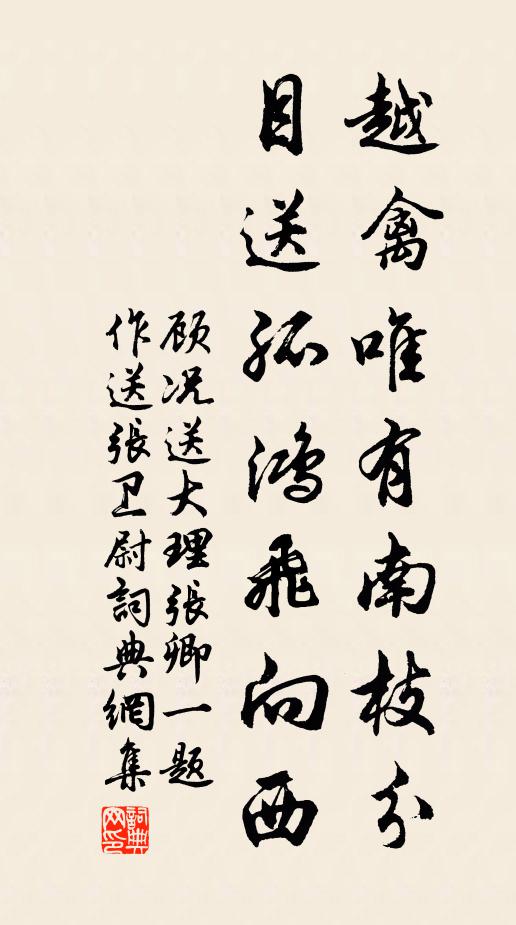 越禽唯有南枝分
目送孤鸿飞向西
顾况送大理張卿一题
作送張卫尉詞典網集
詞典网印